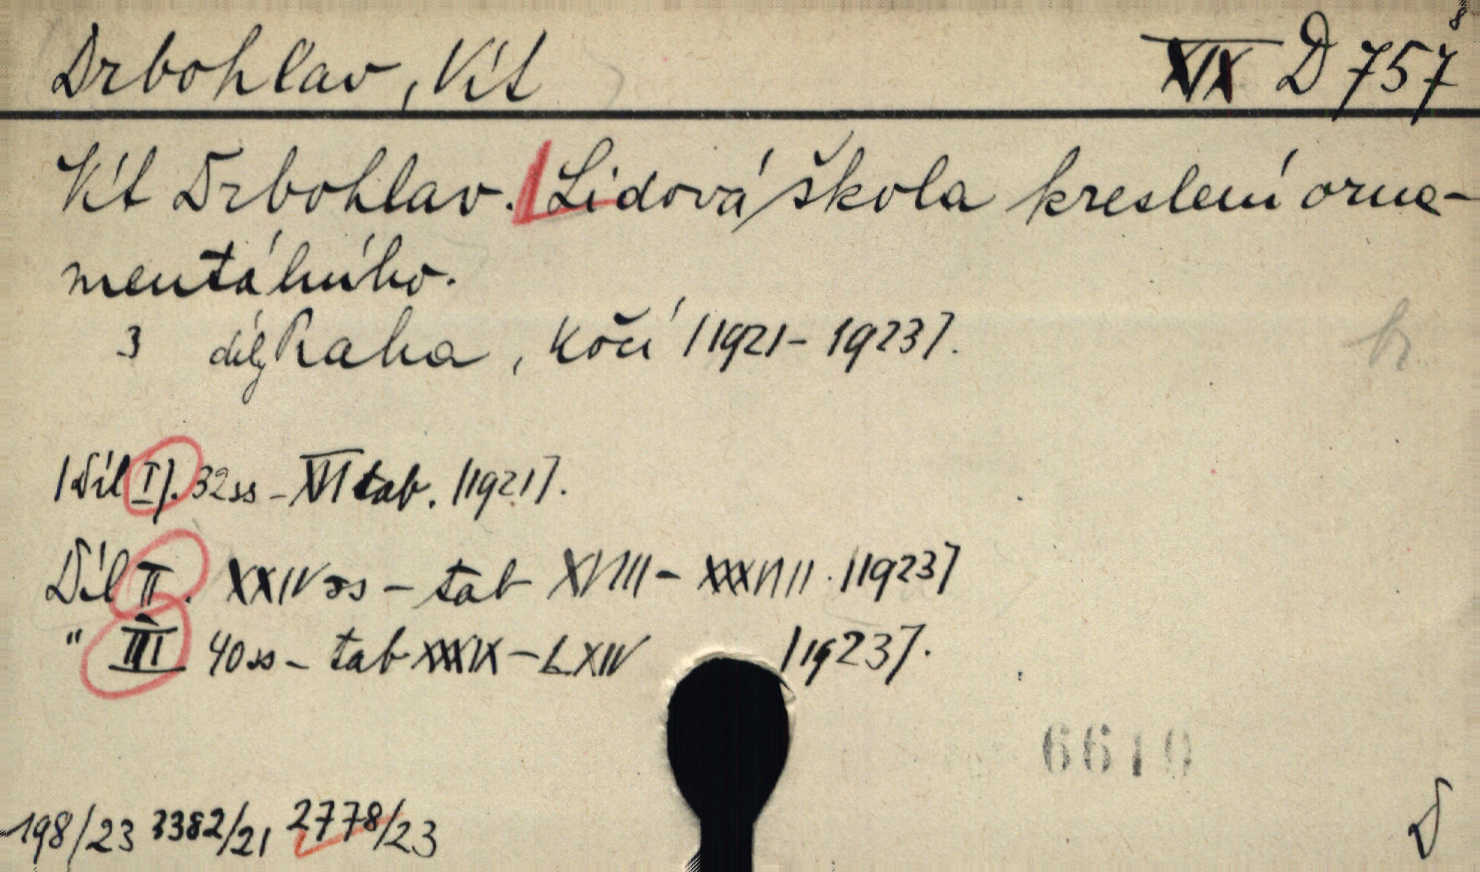 Drbohlav, Vít XIX D 757
8
Vít Drbohlav. Lidová škola kreslení orna-
mentálního.
3 díly Praha, Kočí [1921-1923].
[Díl I]. 32 ss - XVI tab. [1921].
Díl II. XXIV ss - tab XVIII - XXXVIII. [1923]
" III 40 ss - tab XXXIX - LXIV [1923].
6610
198/23 3382/21 2778/23
D